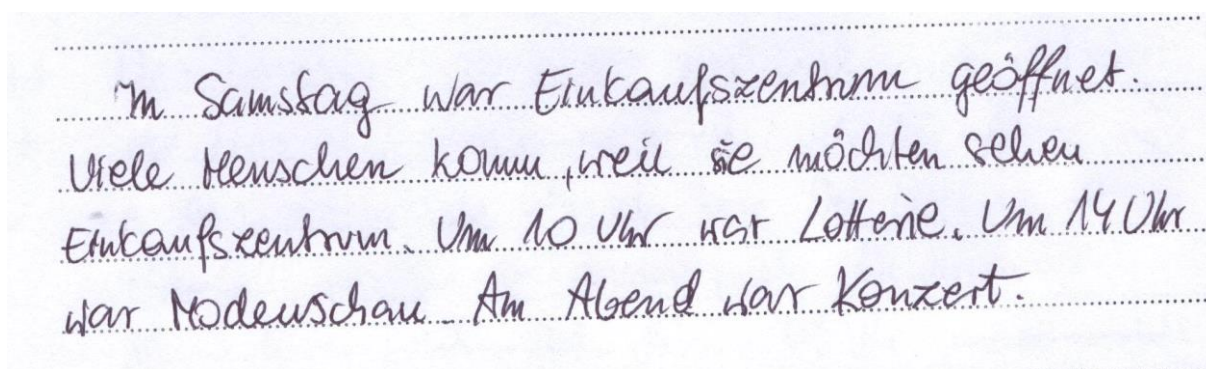 Im Samstag war Einkaufszentrum geöffnet.
Viele Menschen komm, weil sie möchten sehen
Einkaufszentrum. Um 10 Uhr war Lotterie. Um 14 Uhr
war Modenschau. Am Abend war Konzert.